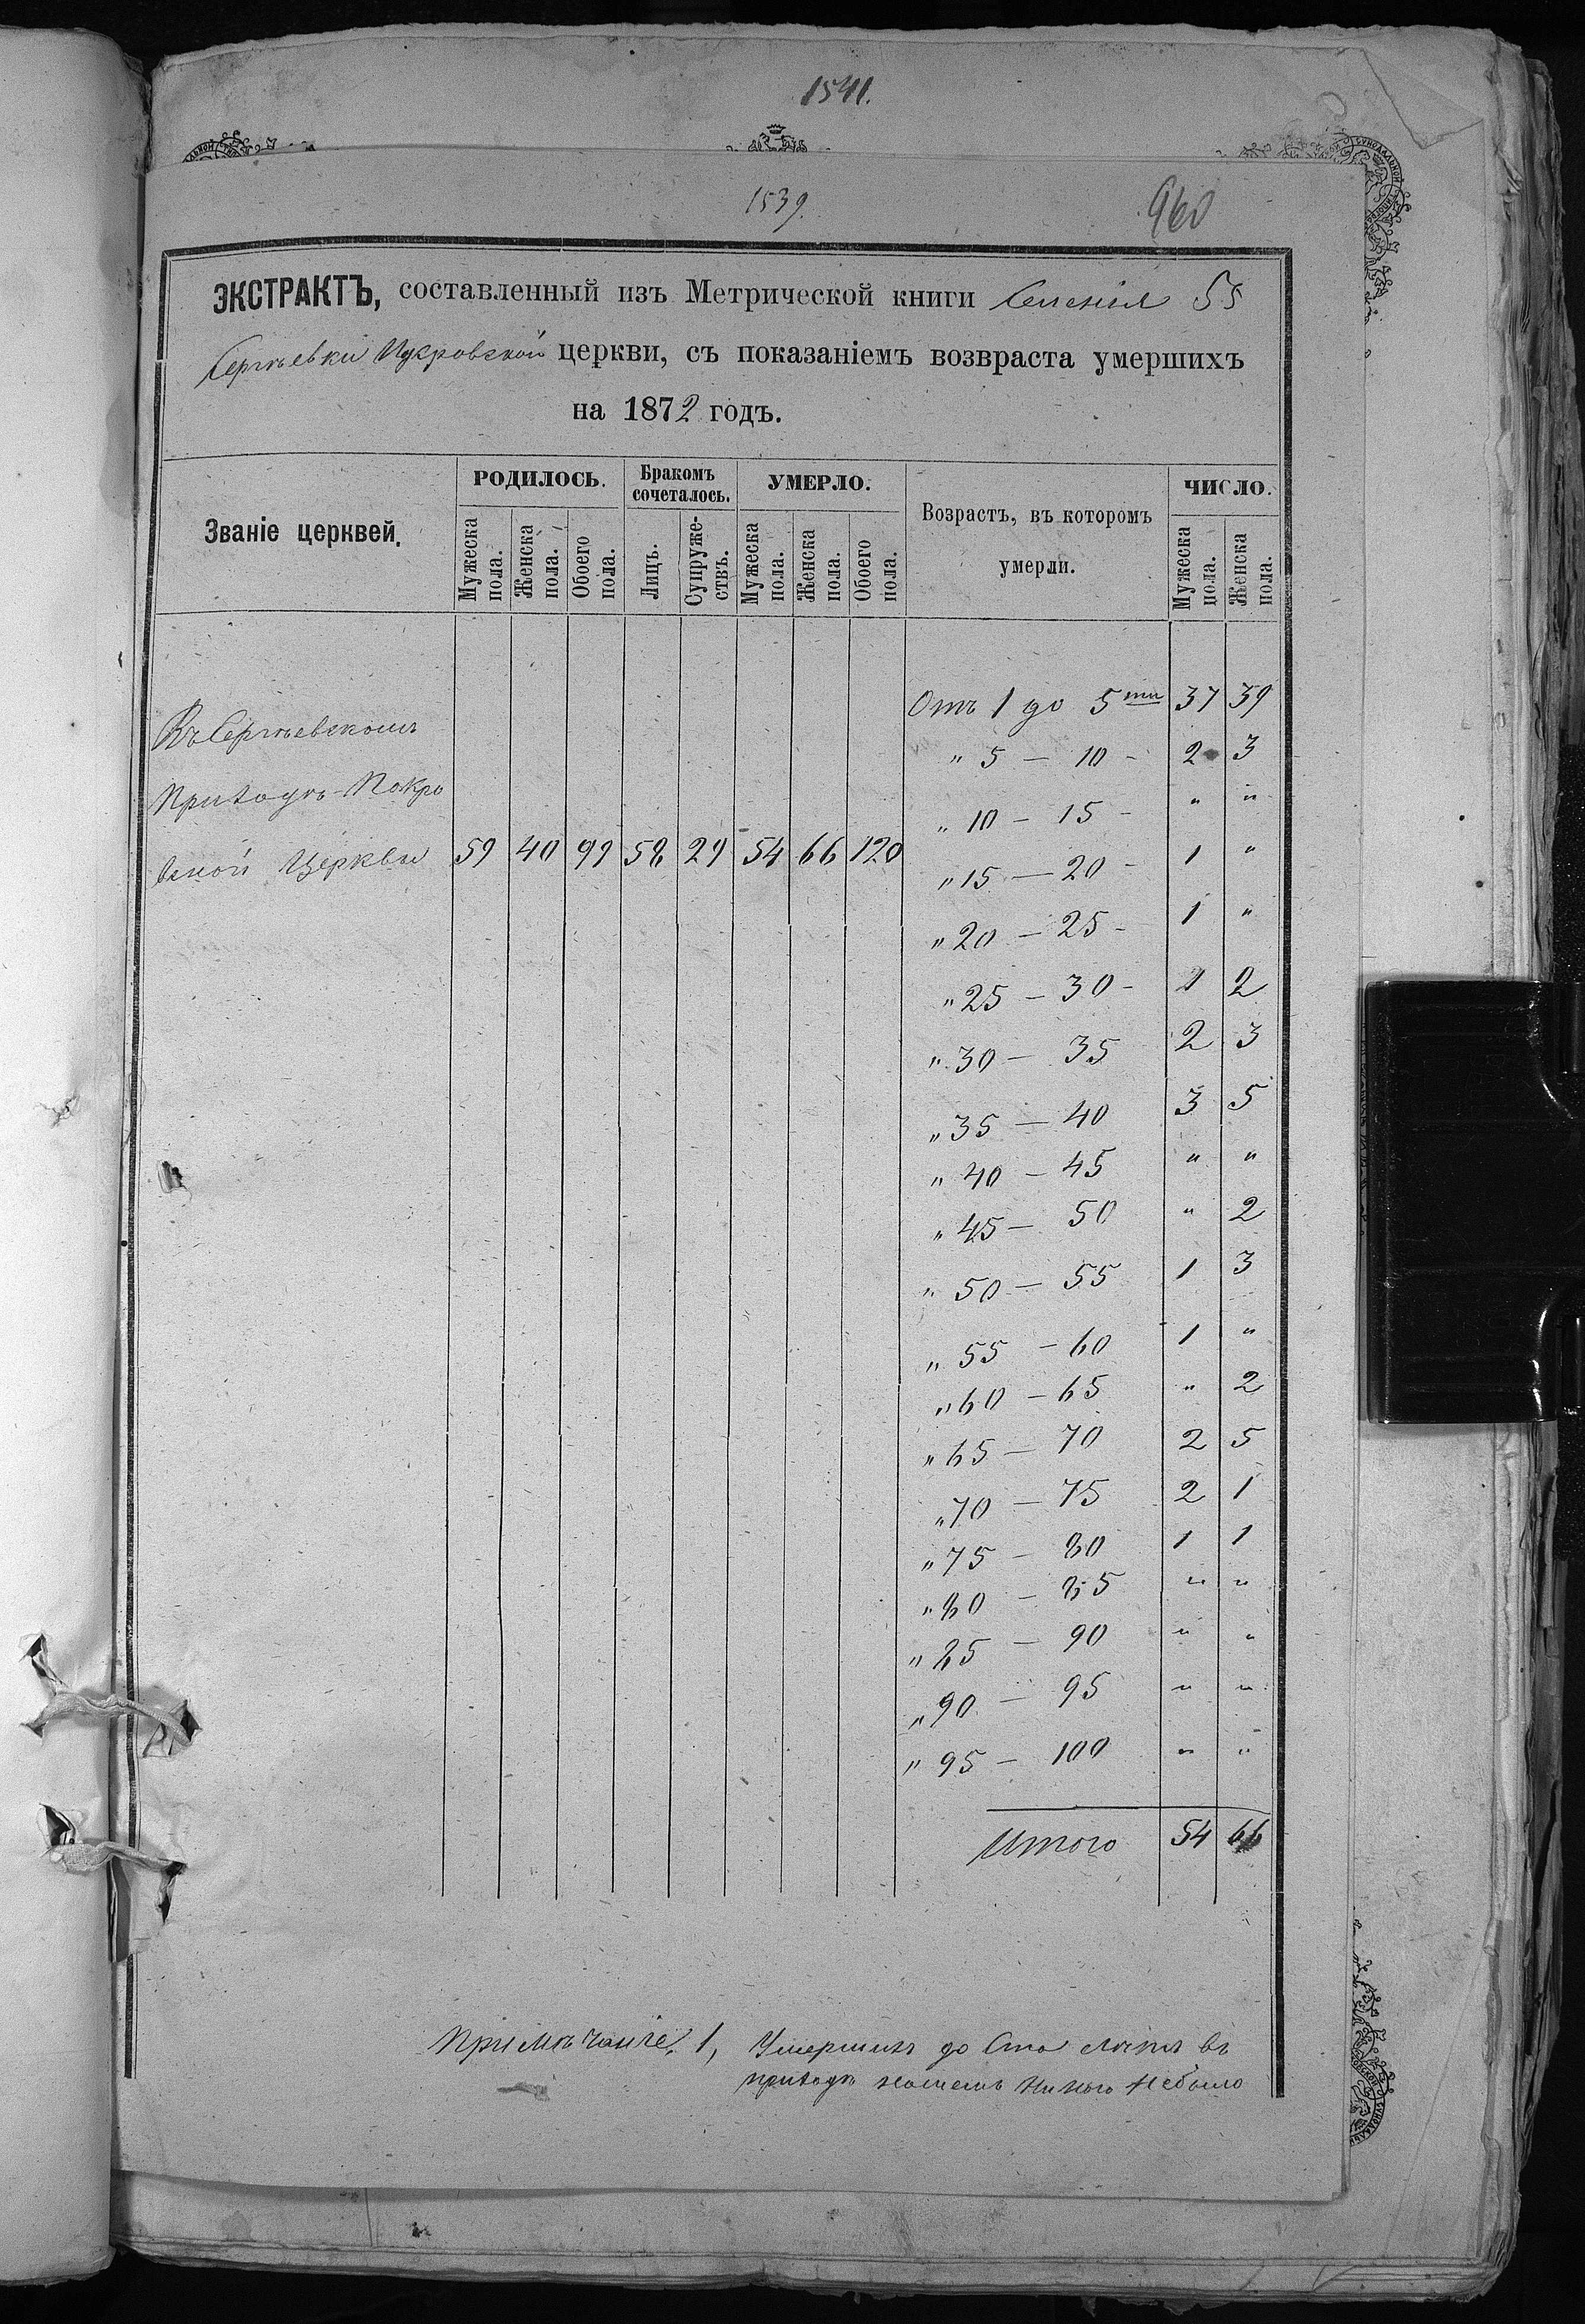 1541.
1539.
960
ЭКСТРАКТЪ, составленный изъ Метрической книги Селенія 55
Сергѣевки Покровской церкви, съ показаніемъ возвраста умершихъ
на 1872 годъ.
Званіе церквей.
РОДИЛОСЬ.
Мужеска пола.
Женска пола.
Обоего пола.
Бракомъ сочеталось.
Лицъ.
Супруже-ствъ.
УМЕРЛО.
Мужеска пола.
Женска пола.
Обоего пола.
Возрастъ, въ которомъ
умерли.
ЧИСЛО.
Мужеска пола.
Женска пола.
Въ Сергѣевскомъ
Приходѣ Покро
вской Церкви 59 40 99 58 29 54 66 120
Отъ 1 до 5ти 37 39
" 5 — 10 - 2 3
" 10 — 15 - " "
" 15 — 20 - 1 "
" 20 — 25 - 1 "
" 25 — 30 - 1 2
" 30 — 35 2 3
" 35 — 40 3 5
" 40 — 45 " "
" 45 — 50 " 2
" 50 — 55 1 3
" 55 — 60 1 "
" 60 — 65 " 2
" 65 — 70 2 5
" 70 — 75 2 1
" 75 — 80 1 1
" 80 — 85 " "
" 85 — 90 " "
" 90 — 95 " "
" 95 — 100 " "
Итого 54 66
Примѣчаніе. 1, Умершихъ до Ста лѣтъ въ
приходѣ нашемъ никого небыло